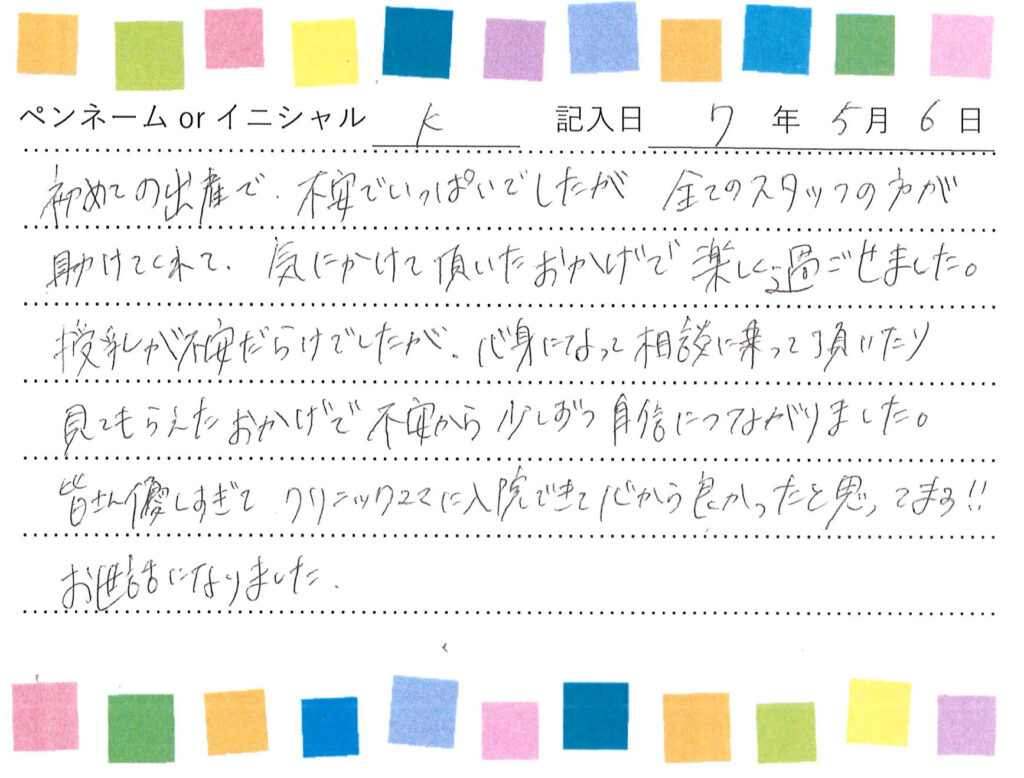 ペンネーム or イニシャル K 記入日 7 年 5 月 6 日
初めての出産で、不安でいっぱいでしたが 全てのスタッフの方が
助けてくれて、気にかけて頂いたおかげで楽しく過ごせました。
授乳が不安だらけでしたが、心身になって相談に乗って頂いたり
見てもらえたおかげで不安から少しずつ自信につながりました。
皆さん優しすぎて クリニックママに入院できて心から良かったと思ってます!!
お世話になりました.